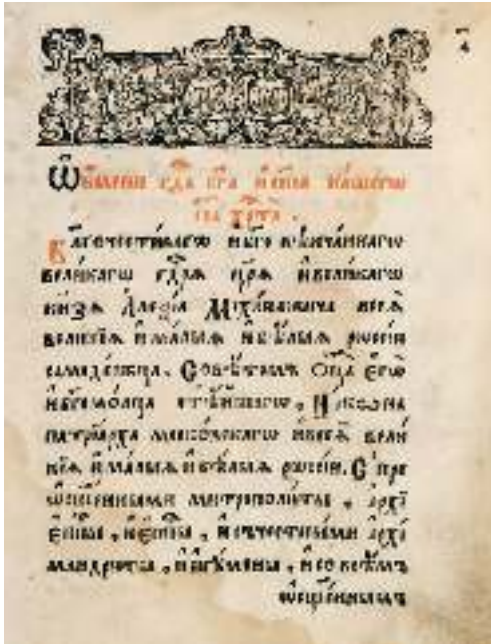 Ѡ҆ꙗвле́нїе гдⷭ҇а бг҃а и҆ сп҃са на́шегѡ
і҆и҃са хрⷭ҇та̀.
Бл҃гочести́вагѡ и҆ бг҃овѣнча́ннагѡ
вели́кагѡ гдⷭ҇рѧ цр҃ѧ̀ и҆ вели́кагѡ
кн҃зѧ А҆леѯі́а Мїха́иловича всеѧ̀
вели́кїѧ и҆ ма́лыѧ и҆ бѣ́лыѧ рѡссі́и
самоде́ржца. Совѣ́томъ Ѻ҆ц҃а̀ є҆гѡ̀
и҆ бг҃омо́лца ст҃ѣ́йшагѡ, Ні́кѡна
патрїа́рха моско́вскагѡ и҆ всеѧ̀ вели́
кїѧ и҆ ма́лыѧ и҆ бѣ́лыѧ рѡссі́и. С̾ пре
ѡ҆сщ҃е́нными митрополи́ты, а҆рхї
є҆пⷭ҇кпы, и҆ є҆пⷭ҇кпы, и҆ с̾ чⷭ҇тны́ми а҆рхї
мандри́ты, и҆ и҆гꙋ́мены, и҆ со всѣ́мъ
ѡ҆сщ҃е́ннымъ